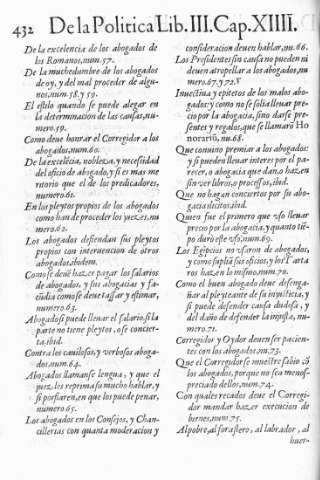 432 De la Politica Lib. III. Cap. XIIII.
De la excelencia de los abogados de
los Romanos, num. 57.
De la muchedumbre de los abogados
de oy, y del mal proceder de algu-
nos, num. 58. y 59.
El estilo quando se puede alegar en
la determinacion de las causas, nu-
mero. 59.
Como deue honrar el Corregidor a los
abogados, num. 60.
De la excelécia, nobleza, y necessidad
del oficio de abogado, y si es mas me
ritorio que el de los predicadores,
numero. 61.
En los pleytos propios de los abogados
como han de proceder los juezes, nu
mero. 62.
Los abogados defiendan sus pleytos
propios con interuencion de otros
abogados, ibidem.
Como se deuē hazer pagar los salarios
de abogados, y sus abogacias y fa-
cūdia como se deue tassar y estimar,
numero. 63.
Abogado si puede lleuar el salario, si la
parte no tiene pleytos, o se concier-
ta, ibid.
Contra los cauilosos, y verbosos aboga-
dos, num. 64.
Abogados llamanse lengua, y que el
juez, los reprima si mucho hablar, y
si porfiaren, en que los puede penar,
numero. 65.
Los abogados en los Consejos, y Chan-
cillerias con quanta moderacion y
consideracion deuen hablar, nu. 66.
Los Presidentes sin causa no pueden ni
deuen atropellar a los abogados, nu
mero. 67. y 72.
Inuectiua y epitetos de los malos abo-
gados: y como no se solia lleuar pre-
cio por la abogacia, sino darse pre-
sentes y regalos, que se llamarō Ho
norarios, nu. 68.
Que conuino premiar a los abogados:
y si pueden lleuar interes por el pa-
recer, o abogacia que dan, o hazen
sin ver libros, o processos, ibid.
Que no hagan conciertos por su abo-
gacia ilicitos, ibid.
Quien fue el primero que vso lleuar
precio por la abogacia, y quanto tiē-
po duro este vso, num. 69.
Los Egipcios no vsaron de abogados,
y como suplia sus oficios, y los Parta
ros hazen lo mismo, num. 70.
Como el buen abogado deue desenga-
ñar al pleyteante de su injusticia, y
si puede defender causa dudosa, y
del daño de defender la injusta, nu-
mero. 71.
Corregidor y Oydor deuen ser pacien-
tes con los abogados, nu. 73.
Que el Corregidor se muestre sabio cō
los abogados, porque no sea menos-
preciado dellos, num. 74.
Con quales recados deue el Corregi-
dor mandar hazer execucion de
bienes, num. 75.
Al pobre, al forastero, al labrador, al
huer-